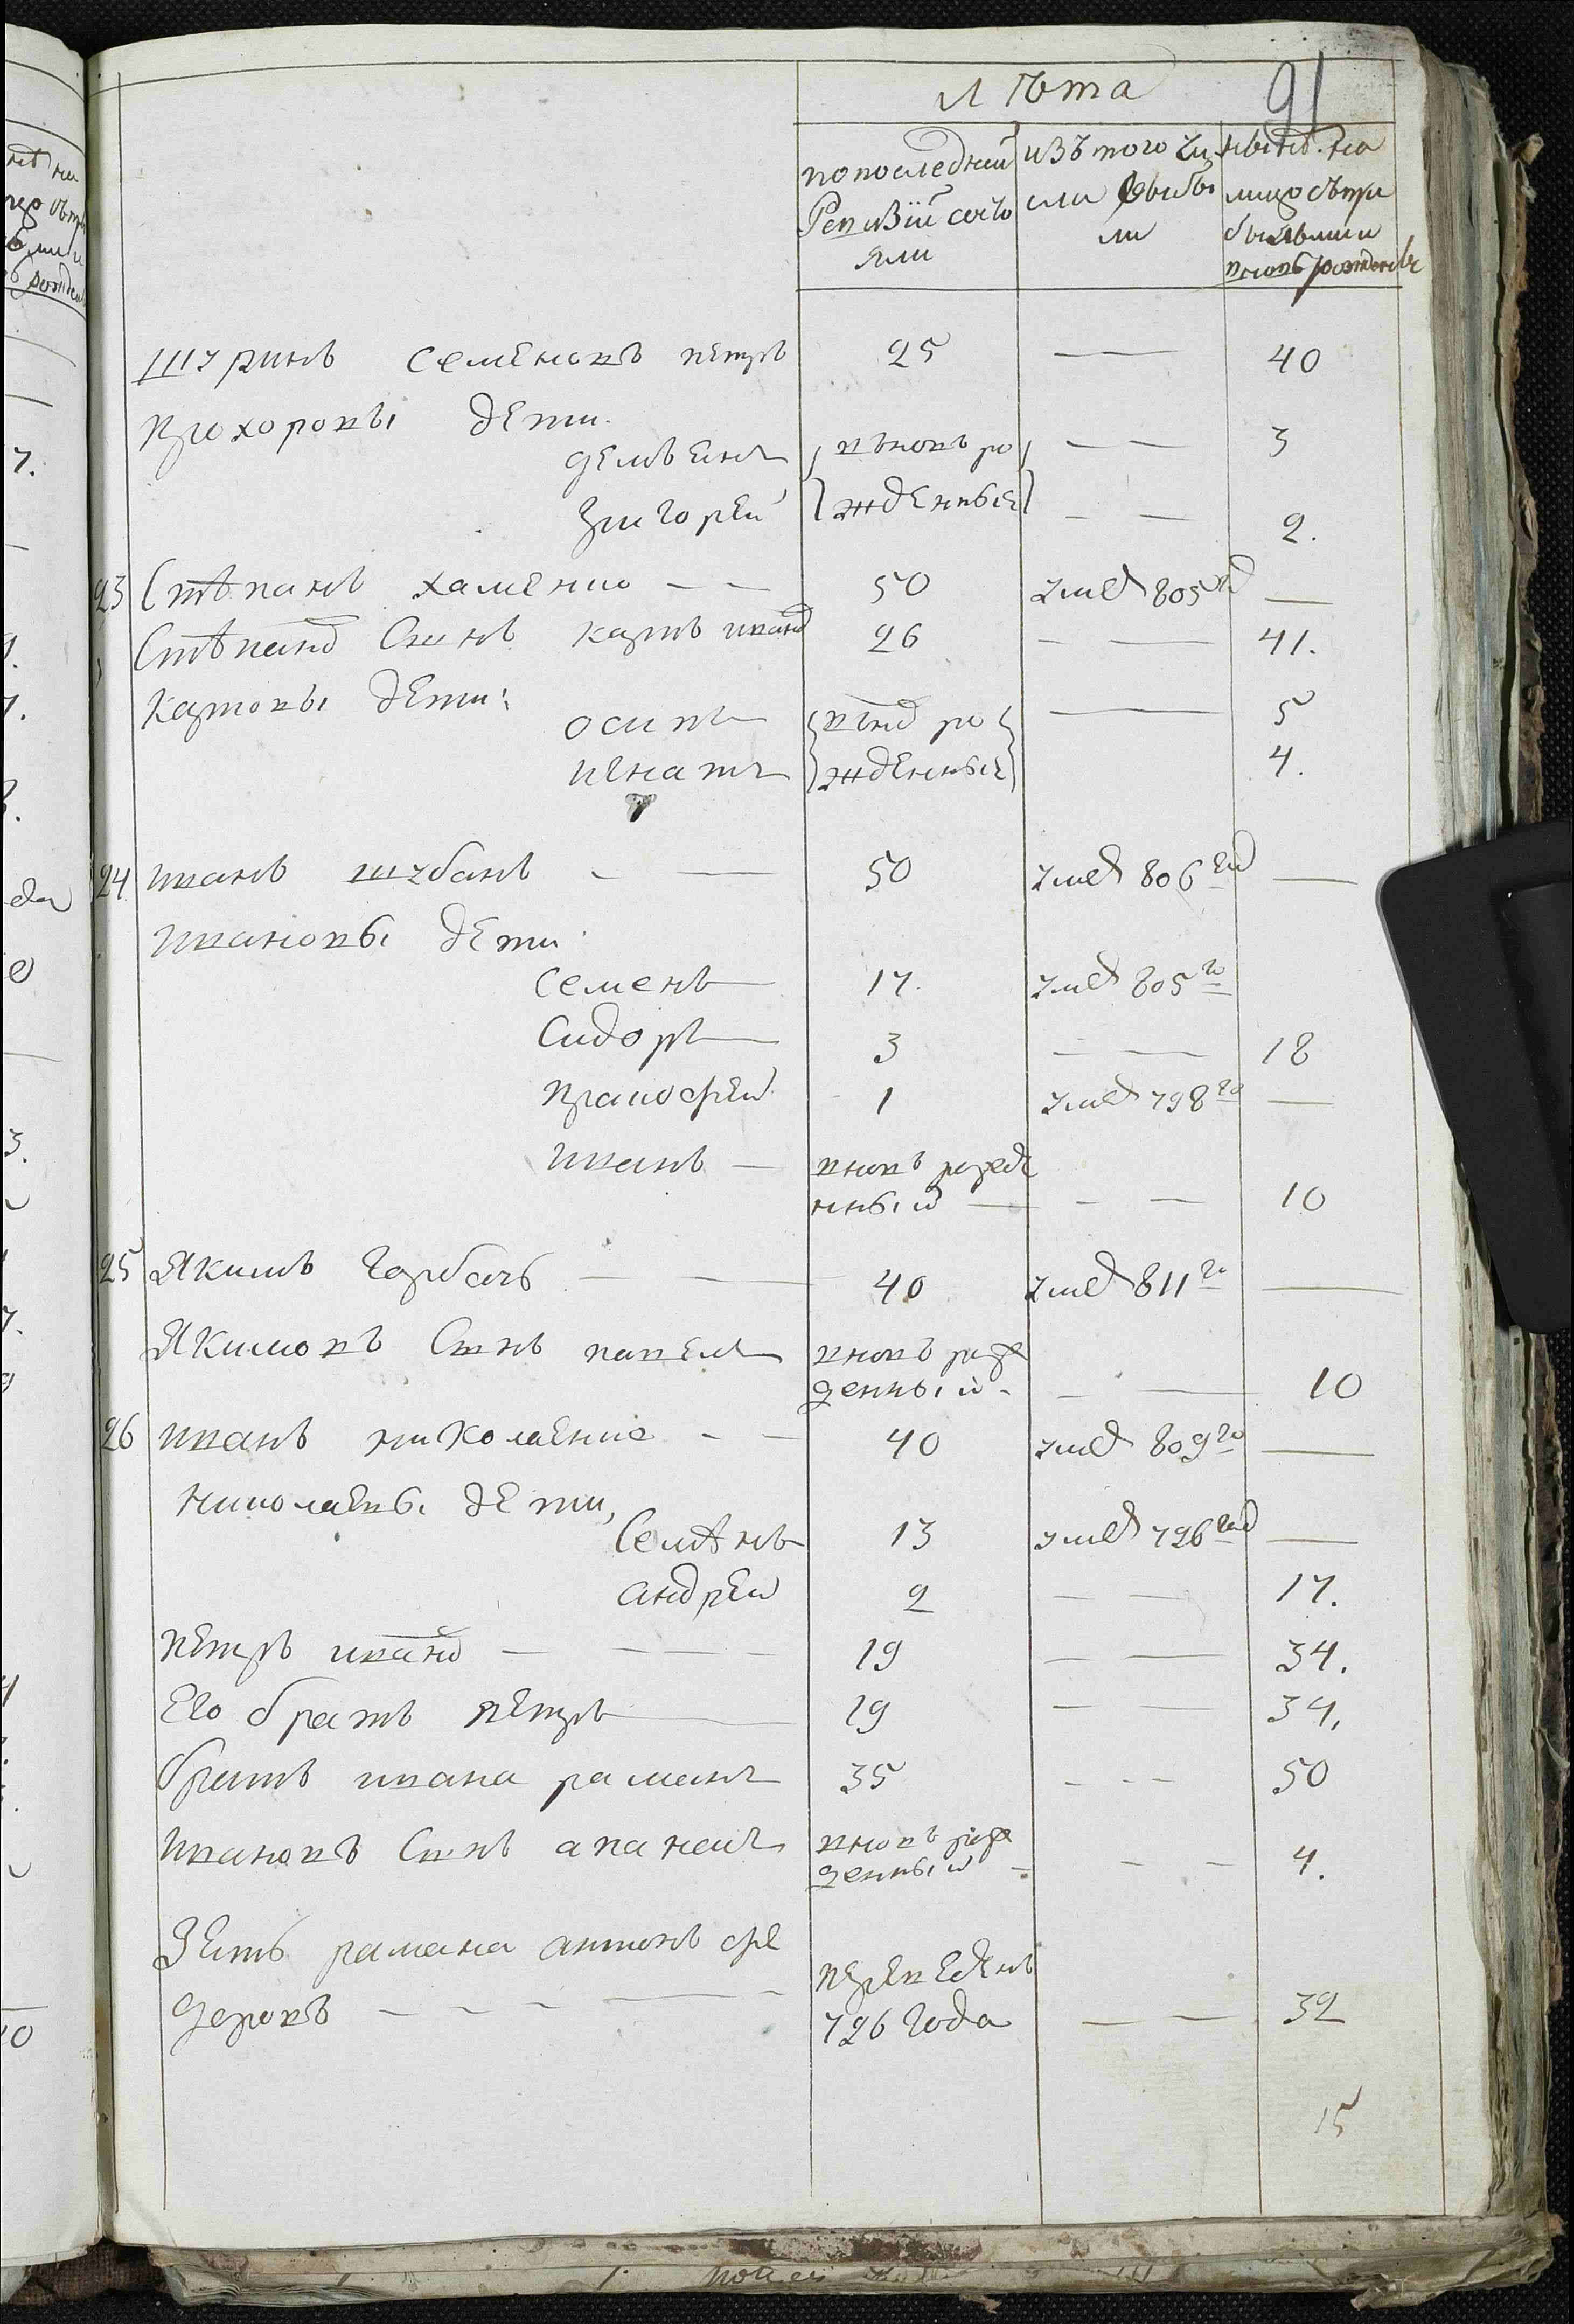 Лѣта 91
по последней Ревизіи состояли
изъ того числа выбыли
нынѣ на лицо съ прибывшими и вновь рожденными
Шуринъ Семеновъ Петръ 25 — 40
Прохоровы дети
Демьянъ вновь ро — 3
Григорей жденные — — 2.
23 Степанъ Хаменко — — 50 умеръ 805 го —
Степанов Сынъ Карпъ Иванов 26 — — 41.
Карповы дети:
Осипъ вновь ро — 5
Игнатъ жденные 4.
24 Иванъ Шубанъ - — 50 умер 806 год —
Ивановы дети
Семенъ 17. умер 805 го
Сидоръ 3 — — 18
Ерофей 1 умер 798 го —
Иванъ — вновь рожде
нный — - — 10
25 Якимъ Горбачъ — — 40 умер 811 го —
Якимовъ Сынъ Павелъ вновь рож
денный - — — 10
26 Иванъ Николаенко - — 40 умер 809 го —
Николаевы дети,
Семенъ 13 умер 796 год —
Андрей 2 — — 17.
Петръ Иванов — — — - 19 — — 34.
Его братъ Петръ — 19 — — 34.
братъ Ивана Раманъ 35 - - - 50
Ивановъ Сынъ Апанасъ вновь рож
денный - - - 4.
Зять Рамана Антонъ Фе
доровъ — - - — - переведенъ
796 года — — 32
15